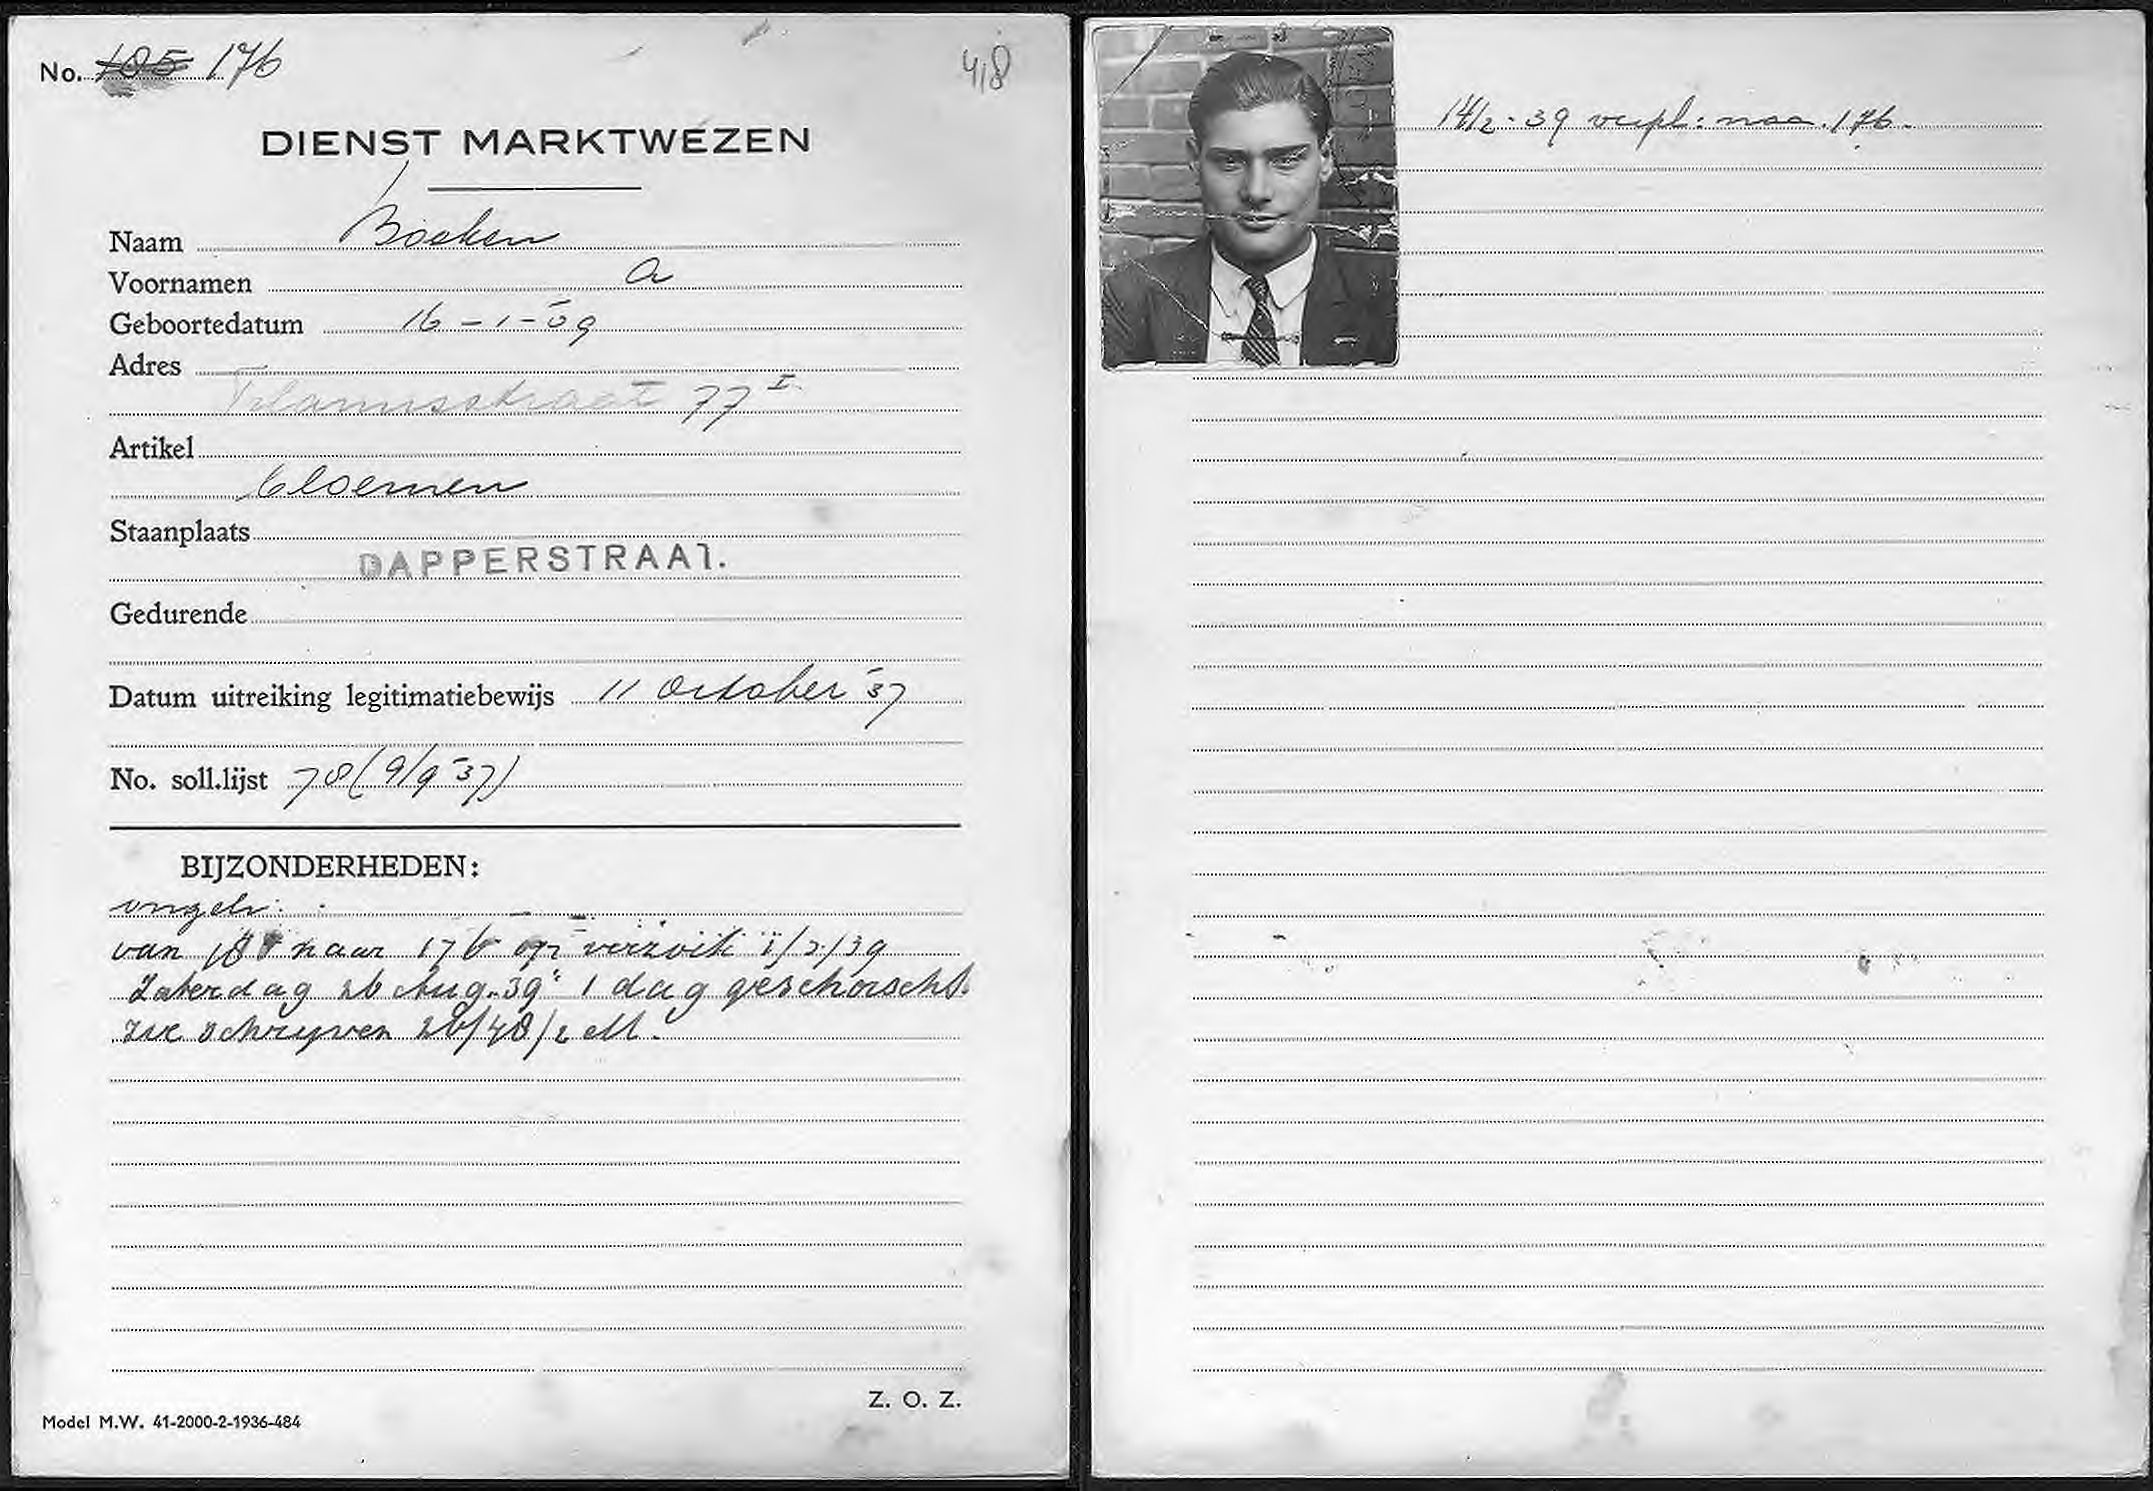 No. 105 176
418
DIENST MARKTWEZEN
Naam Boeken
Voornamen A
Geboortedatum 16-1-'09
Adres
straat 77 I
Artikel
bloemen
Staanplaats
DAPPERSTRAAT.
Gedurende
Datum uitreiking legitimatiebewijs 11 October '37
No. soll.lijst 78 (9/9 '37)
BIJZONDERHEDEN:
ongeh.
van naar 176 op verzoek 1/2/39
Zaterdag 26 Aug. 39 1 dag geschorscht.
zie schrijven 26/48/2 M.
Z. O. Z.
Model M.W. 41-2000-2-1936-484
14/2-39 verpl: naa 176.